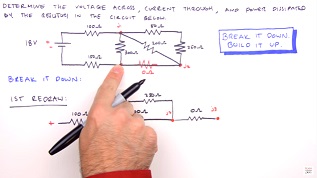 DETERMINE THE VOLTAGE ACROSS, CURRENT THROUGH, AND POWER DISSIPATED
BY THE RESISTORS IN THE CIRCUIT BELOW.
100Ω
50Ω
18V
200Ω
250Ω
100Ω
0Ω
BREAK IT DOWN.
BUILD IT UP.
BREAK IT DOWN:
1ST REDRAW:
100Ω
0Ω